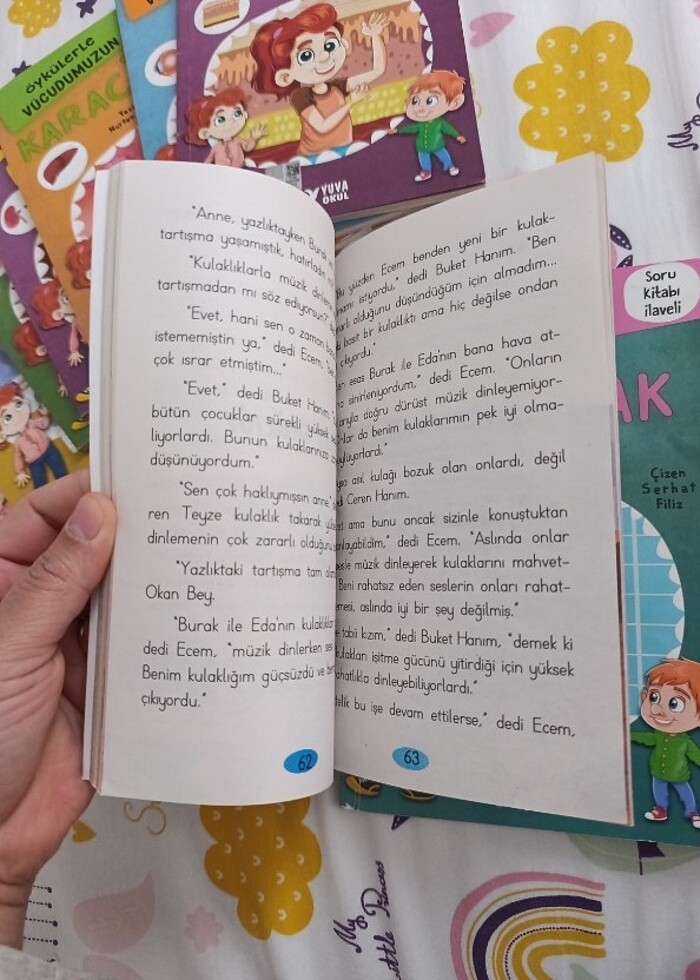 öykülerle
VÜCUDUMUZUN
KARAC
YUVA
OKUL
"Anne, yazlıktayken Burak
tartışma yaşamıştık,
"Kulaklıklarla müzik
tartışmadan mı söz ediyorsun?"
"Evet, hani sen o zaman
istememiştin ya," dedi Ecem.
çok ısrar etmiştim..."
"Evet," dedi Buket Hanım,
bütün çocuklar sürekli yüksek
liyorlardı. Bunun kulaklarınıza
düşünüyordum."
"Sen çok haklıymışsın anne,"
ren Teyze kulaklık takarak
dinlemenin çok zararlı olduğunu
"Yazlıktaki tartışma tam
Okan Bey.
"Burak ile Eda'nın kulaklıkları
dedi Ecem, "müzik dinlerken
Benim kulaklığım güçsüzdü ve
çıkıyordu."
62
yüzden Ecem benden yeni bir kulak-
istiyordu," dedi Buket Hanım. "Ben
olduğunu düşündüğüm için almadım...
basit bir kulaklıktı ama hiç değilse ondan
çıkıyordu."
esas Burak ile Eda'nın bana hava at-
sinirleniyordum," dedi Ecem. "Onların
doğru dürüst müzik dinleyemiyor-
da benim kulaklarımın pek iyi olma-
asıl kulağı bozuk olan onlardı, değil
Ceren Hanım.
ama bunu ancak sizinle konuştuktan
dedi Ecem. "Aslında onlar
müzik dinleyerek kulaklarını mahvet-
Beni rahatsız eden seslerin onları rahat-
aslında iyi bir şey değilmiş."
tabii kızım," dedi Buket Hanım, "demek ki
kulakları işitme gücünü yitirdiği için yüksek
rahatlıkla dinleyebiliyorlardı."
bu işe devam ettilerse," dedi Ecem,
63
Soru
Kitabı
ilaveli
AK
Çizen
Serhat
Filiz
My
Little Princess